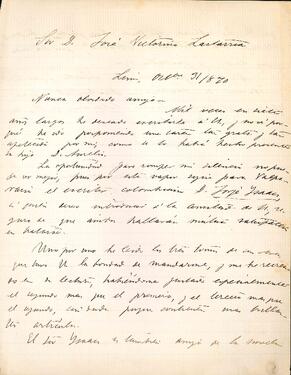 Sr. D. José Victorino Lastarria
Lima, Octbre 31/870
Nunca olvidado amigo
Mil veces en estos
años largos he deseado escribirle a U, y no sé por
qué he ido posponiendo una carta tan grata y tan
apetecida por mí, como se lo habrá hecho presente
su hijo D. Aurelio.
La oportunidad para romper mi silencio no pue-
de ser mejor, pues por este vapor sigue para Valpa-
raiso el escritor colombiano D. Jorje Isaacs,
a quien deseo introducir a la amistad de U, se-
guro de que ambos hallarán mútua satisfaccion
en tratarse.
Uno por uno he leido los tres tomos de su obra
que tuvo U. la bondad de mandarme, y me he recrea-
do en su lectura, habiéndome gustado especialmente
el segundo mas que el primero, y el tercero mas que
el segundo, sin duda porque contiene mas brillan-
tes artículos.
El Sr Isaacs es tambien amigo de la